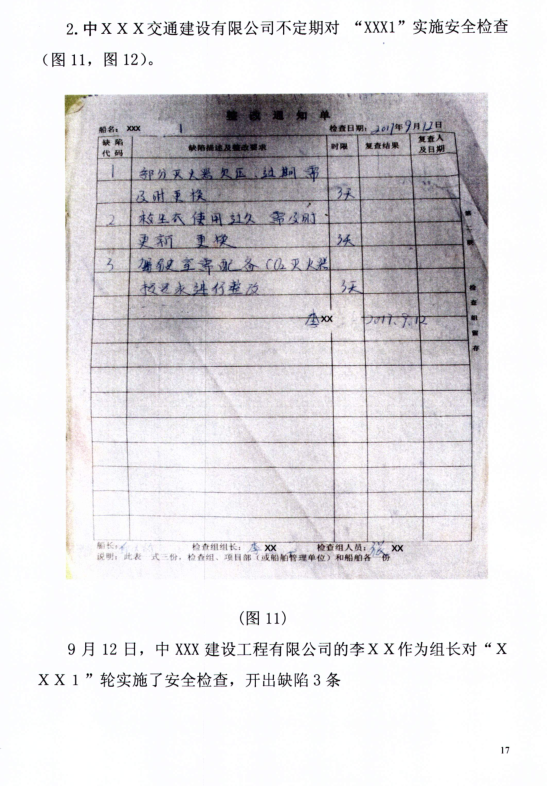 2.中ＸＸＸ交通建设有限公司不定期对 “XXX1”实施安全检查
(图 11，图 12)。
整 改 通 知 单
船名：XXX 1 检查日期：2017年9月12日
缺陷代码 缺陷描述及整改要求 时限 复查结果 复查人及日期
1 部分灭火器欠压、过期 需
及时更换 3天
2 救生衣使用过久 需及时
更新 更换 3天
3 驾驶室需配备CO2灭火器
3天
李XX 2017.9.12
第二联 检查组留存
船长： 检查组组长：李XX 检查组人员：张XX
说明：此表一式三份，检查组、项目部（或船舶管理单位）和船舶各一份
(图 11)
9 月 12 日，中 XXX 建设工程有限公司的李ＸＸ作为组长对“Ｘ
ＸＸ１”轮实施了安全检查，开出缺陷 3 条
17